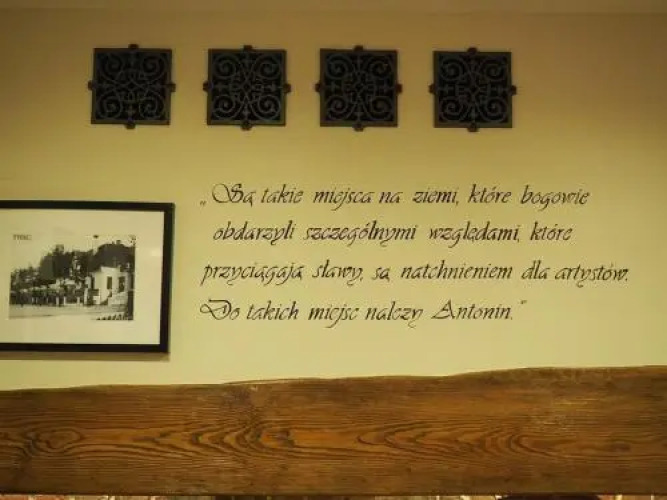 „Są takie miejsca na ziemi, które bogowie
obdarzyli szczególnymi względami, które
przyciągają sławy, są natchnieniem dla artystów.
Do takich miejsc należy Antonin."